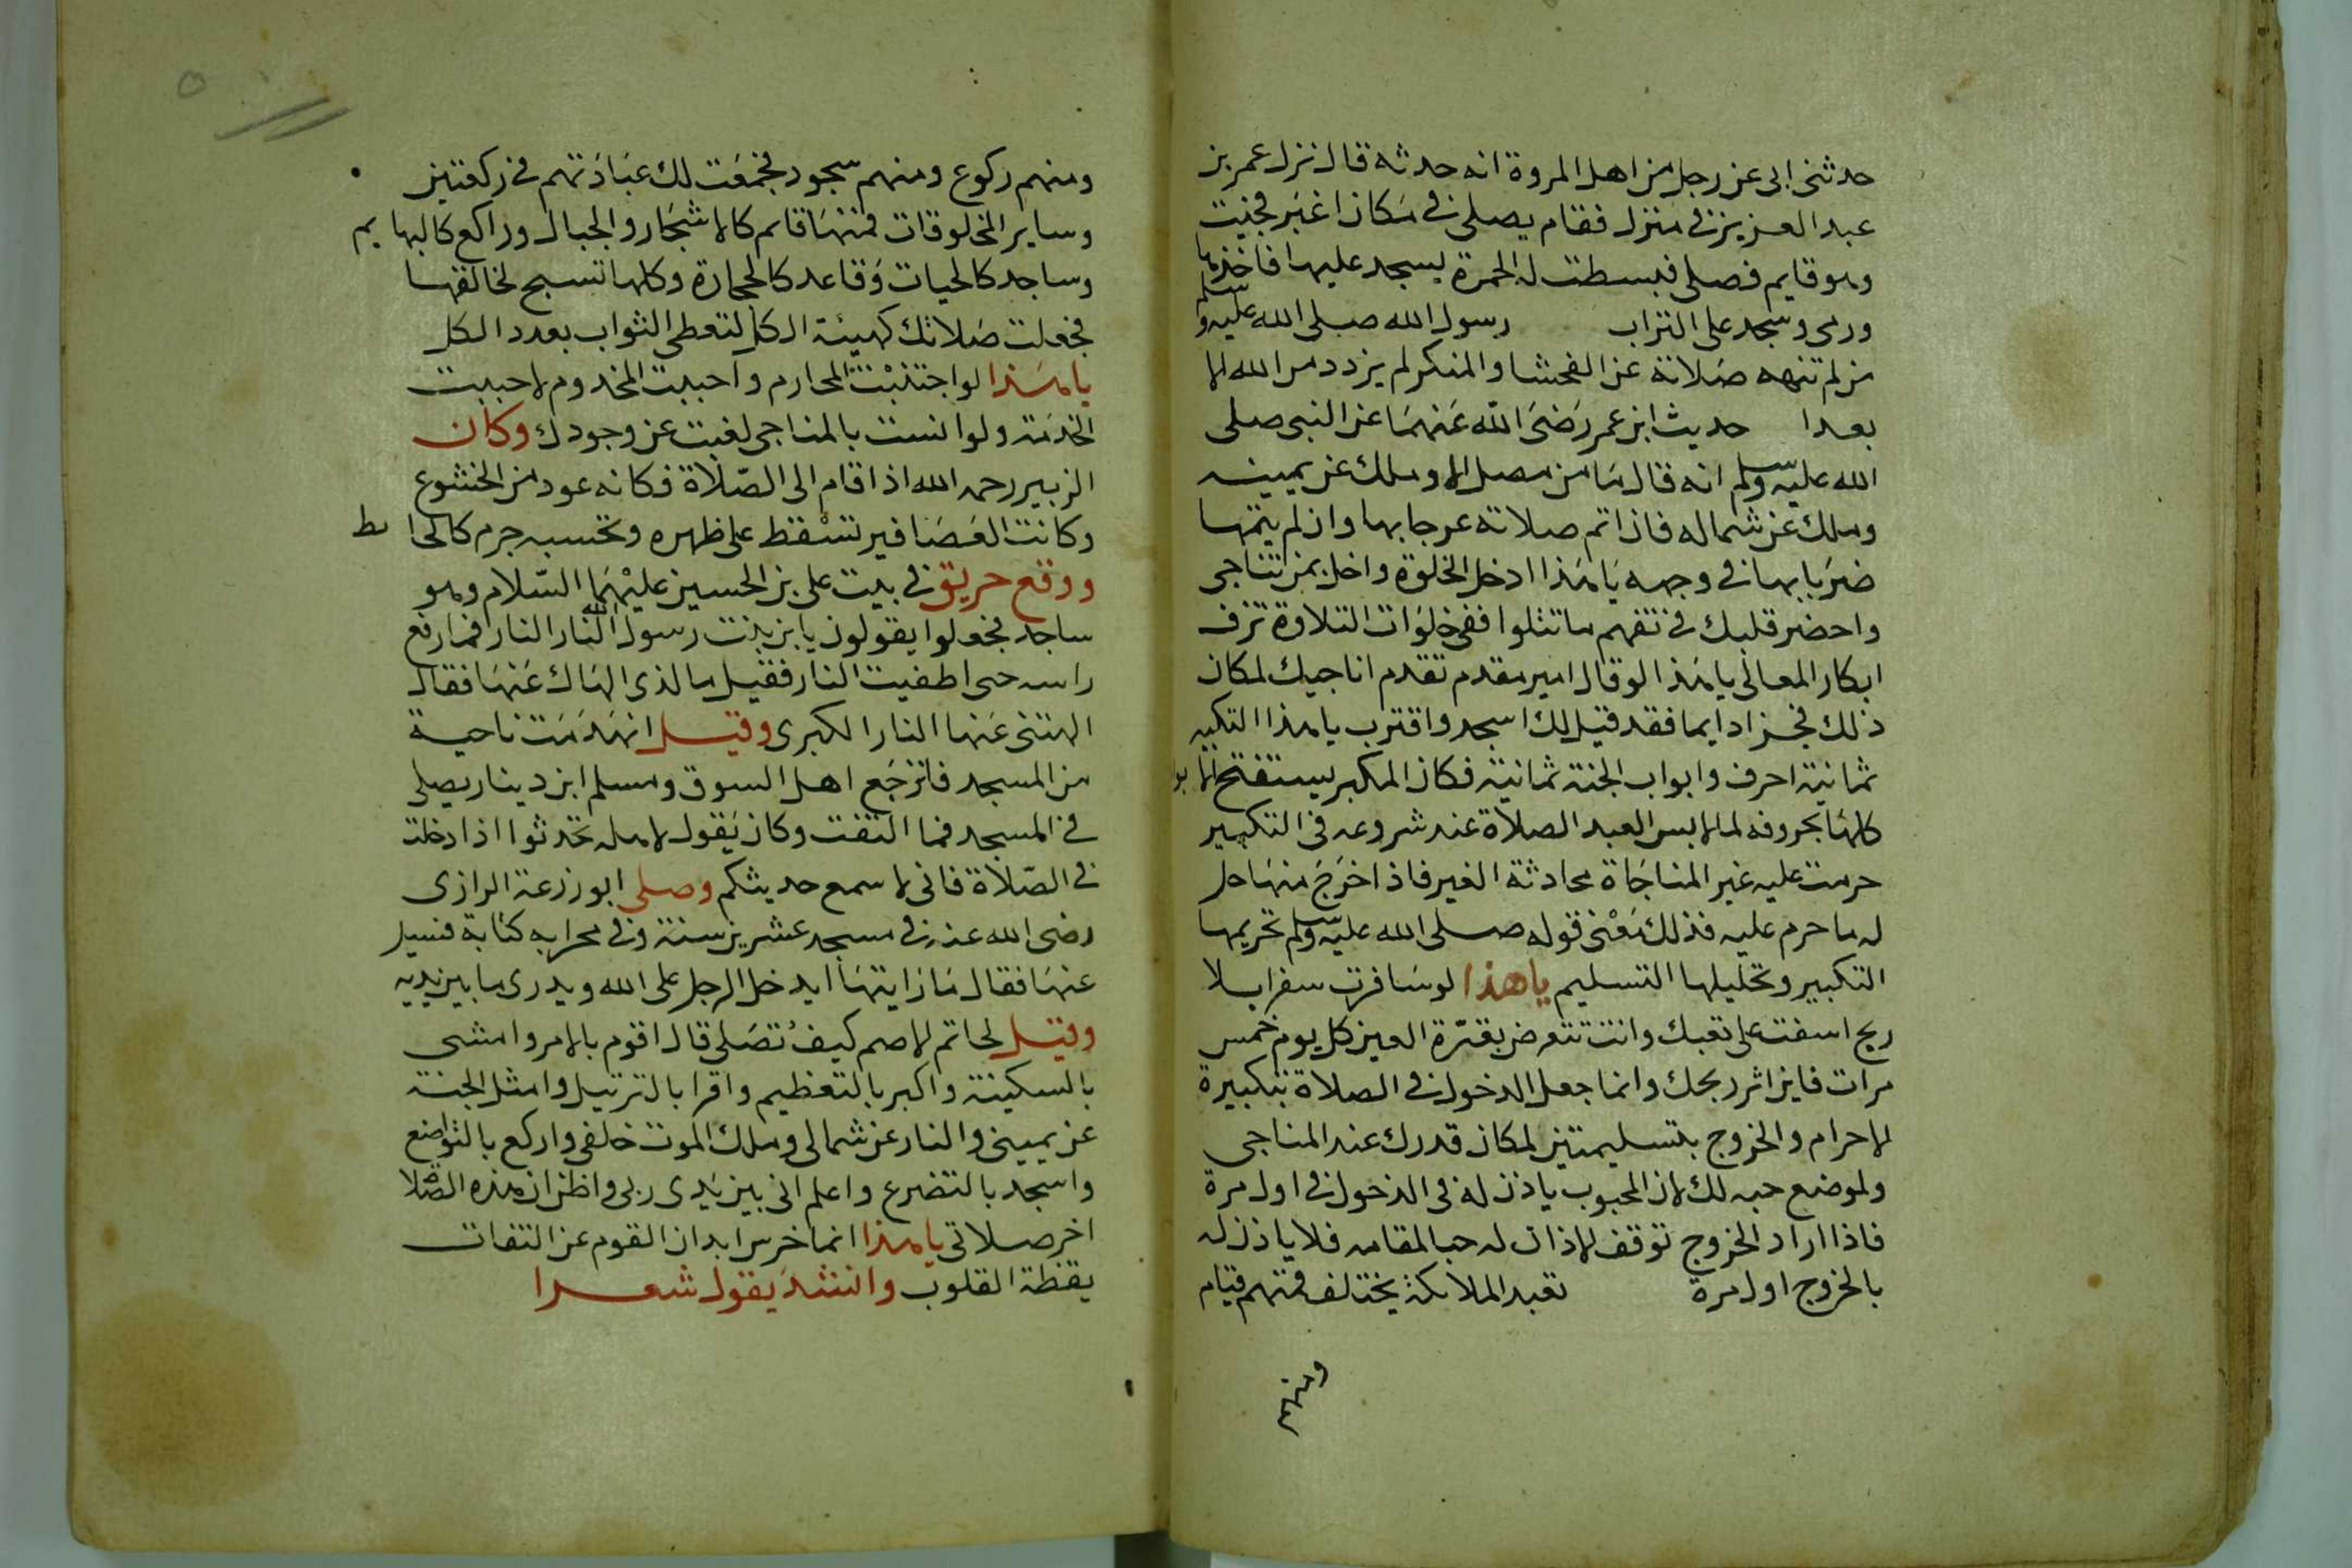 حدثنى ابى عن رجل من اهل المروة انه حدثه قال نزل عمر بن
عبد العزيز فى منزل فقام يصلى فى مكان اغبر فجئت
وهو قايم فصلى فبسطت له الخمرة ليسجد عليها فاخذها
ورمى وسجد على التراب رسول الله صلى الله عليه وسلم
من لم تنهه صلاته عن الفحشا والمنكر لم يزدد من الله الا
بعدا حديث ابن عمر رَضىَ الله عَنهمَا عن النبى صلى
الله عليه وسلم انه قال مَا من مصل الا وملك عن يمينه
وملك عن شماله فاذا اتم صلاته عرجا بها وان لم يتمها
ضربَا بها فى وجهه يَا هَذا ادخل الخلوة واخل بمن تناجى
واحضر قلبك فى تفهم ما تتلوا ففى خلوَات التلاوة تزف
ابكار المعالى يا هَذا لو قال امير مقدم تقدم اناجيك لمكان
ذلك فخزا دايما فقد قيل لك اسجد واقترب يا هذا التكبير
ثمانية احرف وابواب الجنة ثمانية فكان المكبر يستفتح الابو
كلهَا بحروفه لما لابس العبد الصلاة عند شروعه فى التكبير
حرمت عليه غير المناجَاة محادثة الغير فاذا اخرَجَ منهَا حل
له ما حرم عليه فذلك مَعْنى قوله صلى الله عليه وسلم تحريمها
التكبير وتحليلها التسليم يا هذا لو سَافرت سفرا بلا
ربح اسفت على تعبك وانت تتعرض بقرّة العين كل يوم خمس
مرات فاين اثر ربحك وانما جعل الدخول فى الصلاة بتكبيرة
الاحرام والخروج بتسليمتين لمكان قدرك عند المناجى
ولموضع حبه لك لان المحبوب ياذن له فى الدخول فى اول مرة
فاذا اراد الخروج توقف الاذان له حبا لمقامه فلا ياذن له
بالخروج اول مرة تعبد الملائكة يختلف فمنهم قيام
ومنهم
ومنهم ركوع ومنهم سجود فجمعَت لك عبَادَتهم فى ركعتين
وساير المخلوقات فمنهَا قايم كالاشجَار والجبال وراكع كالبهايم
وساجد كالحيات وَقاعد كالحجارة وكلها تسبح لخالقها
فجعلت صَلاتك كهيئة الكل لتعطى الثواب بعدد الكل
يا هَذا لو اجتنبْت المحارم واحببت المخدوم لاحببت
الخدمَة ولو انست بالمناجى لغبت عن وجودك وكان
الزبير رحمه الله اذا قام الى الصّلاة فكانه عود من الخشوع
وكانت العَصَافير تسْقط على ظهره وتحسبه جرم كالحايط
ووقع حريق فى بيت على بن الحسين عليْهمَا السّلام وهو
ساجد فجعلوا يقولون يا بن بنت رسول الله النار النار فما رفع
راسه حتى اطفيت النار فقيل ما الذى الهَاك عَنهَا فقال
الهتنى عَنها النار الكبرى وقيل انهَدَمَت ناحية
من المسجد فانزجَع اهل السوق ومسلم ابن دينار يصلى
فى المسجد فما التفت وكان يَقول لاهله تحدثوا اذا دخلت
فى الصّلاة فانى لا اسمع حديثكم وصلى ابو زرعة الرازى
رضى الله عنه فى مسجد عشرين سنة وفى محرابه كتابة فسيل
عنهَا فقال مَا رَايتهَا ايدخل الرجل على الله ويدرى ما بين يديه
وقيل لحاتم الاصم كيف تصَلى قال اقوم بالامر وامشى
بالسكينة واكبر بالتعظيم واقرا بالترتيل وامثل الجنة
عن يمينى والنار عن شمالى وملك الموت خلفى واركع بالتواضع
واسجد بالتضرع واعلم انى بين يَدى ربى واظن ان هذه الصّلا
اخر صلاتى يا هذا انما خرس ابدان القوم عن التفات
يقظة القلوب وانشدَ يقول شعرا